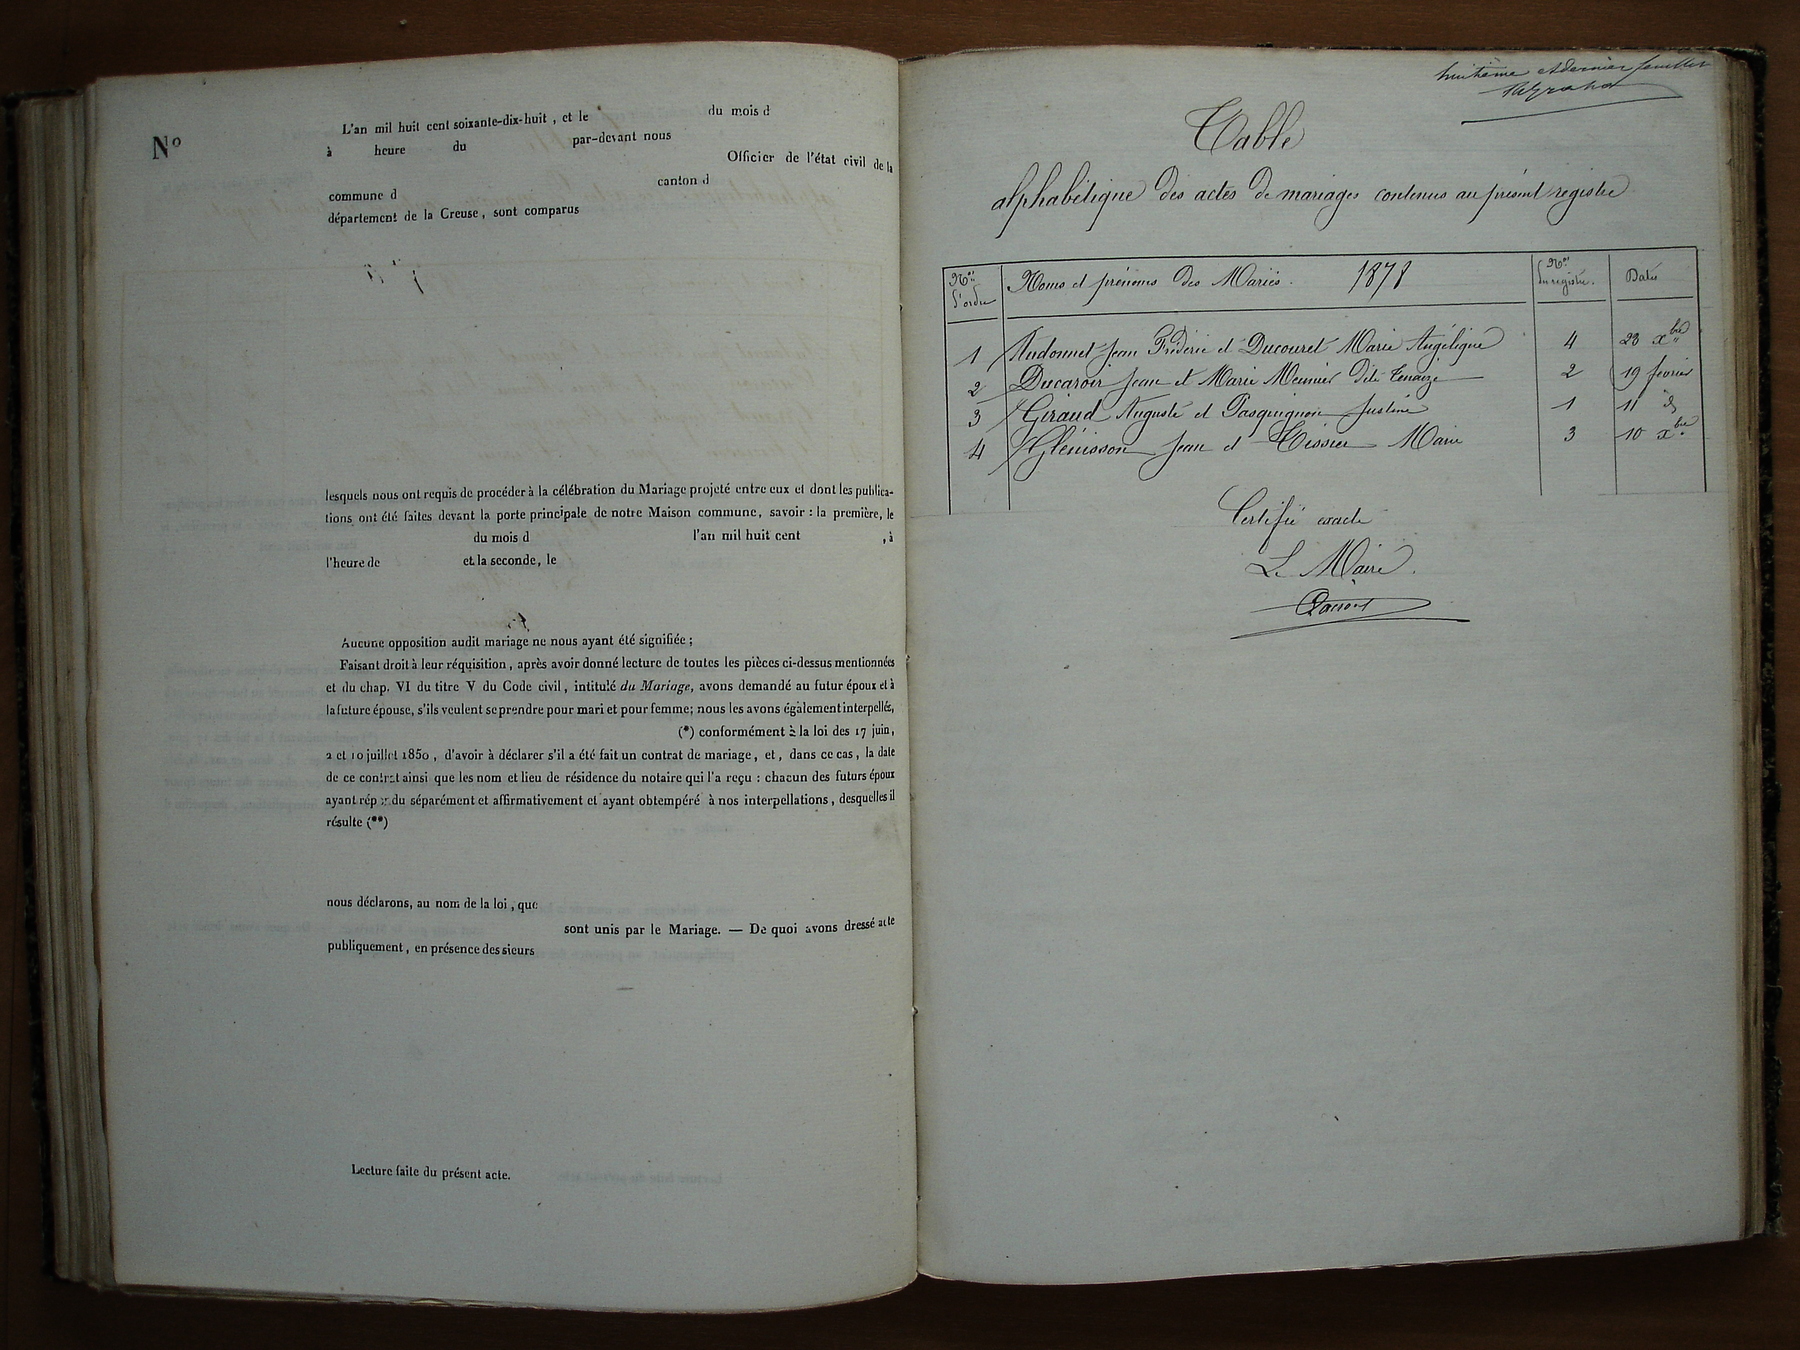 Nº
L'an mil huit cent soixante-dix-huit, et le du mois d
à heure du par-devant nous
Officier de l'état civil de la
commune d canton d
département de la Creuse, sont comparus
lesquels nous ont requis de procéder à la célébration du Mariage projeté entre eux et dont les publica-
tions ont été faites devant la porte principale de notre Maison commune, savoir : la première, le
du mois d l'an mil huit cent , à
l'heure de et la seconde, le
Aucune opposition audit mariage ne nous ayant été signifiée ;
Faisant droit à leur réquisition, après avoir donné lecture de toutes les pièces ci-dessus mentionnées
et du chap. VI du titre V du Code civil, intitulé du Mariage, avons demandé au futur époux et à
la future épouse, s'ils veulent se prendre pour mari et pour femme; nous les avons également interpellés,
(*) conformément à la loi des 17 juin,
2 et 10 juillet 1850, d'avoir à déclarer s'il a été fait un contrat de mariage, et, dans ce cas, la date
de ce contrat ainsi que les nom et lieu de résidence du notaire qui l'a reçu : chacun des futurs époux
ayant répondu séparément et affirmativement et ayant obtempéré à nos interpellations, desquelles il
résulte (**)
nous déclarons, au nom de la loi, que
sont unis par le Mariage. — De quoi avons dressé acte
publiquement, en présence des sieurs
Lecture faite du présent acte.
huitième et dernier feuillet
Table
alphabétique des actes de mariages contenus au présent registre
Nos d'ordre Noms et prénoms des Mariés. 1878 Nos du registre. Dates
1 Audonnet Jean Frédéric et Ducouret Marie Angélique 4 23 xbre
2 Ducaroir Jean et Marie Meunier dite Tenaize 2 19 février
3 Giraud Auguste et Pasquignon Justine 1 11 d
4 Glénisson Jean et Tissier Marie 3 10 xbre
Certifié exacte
Le Maire.